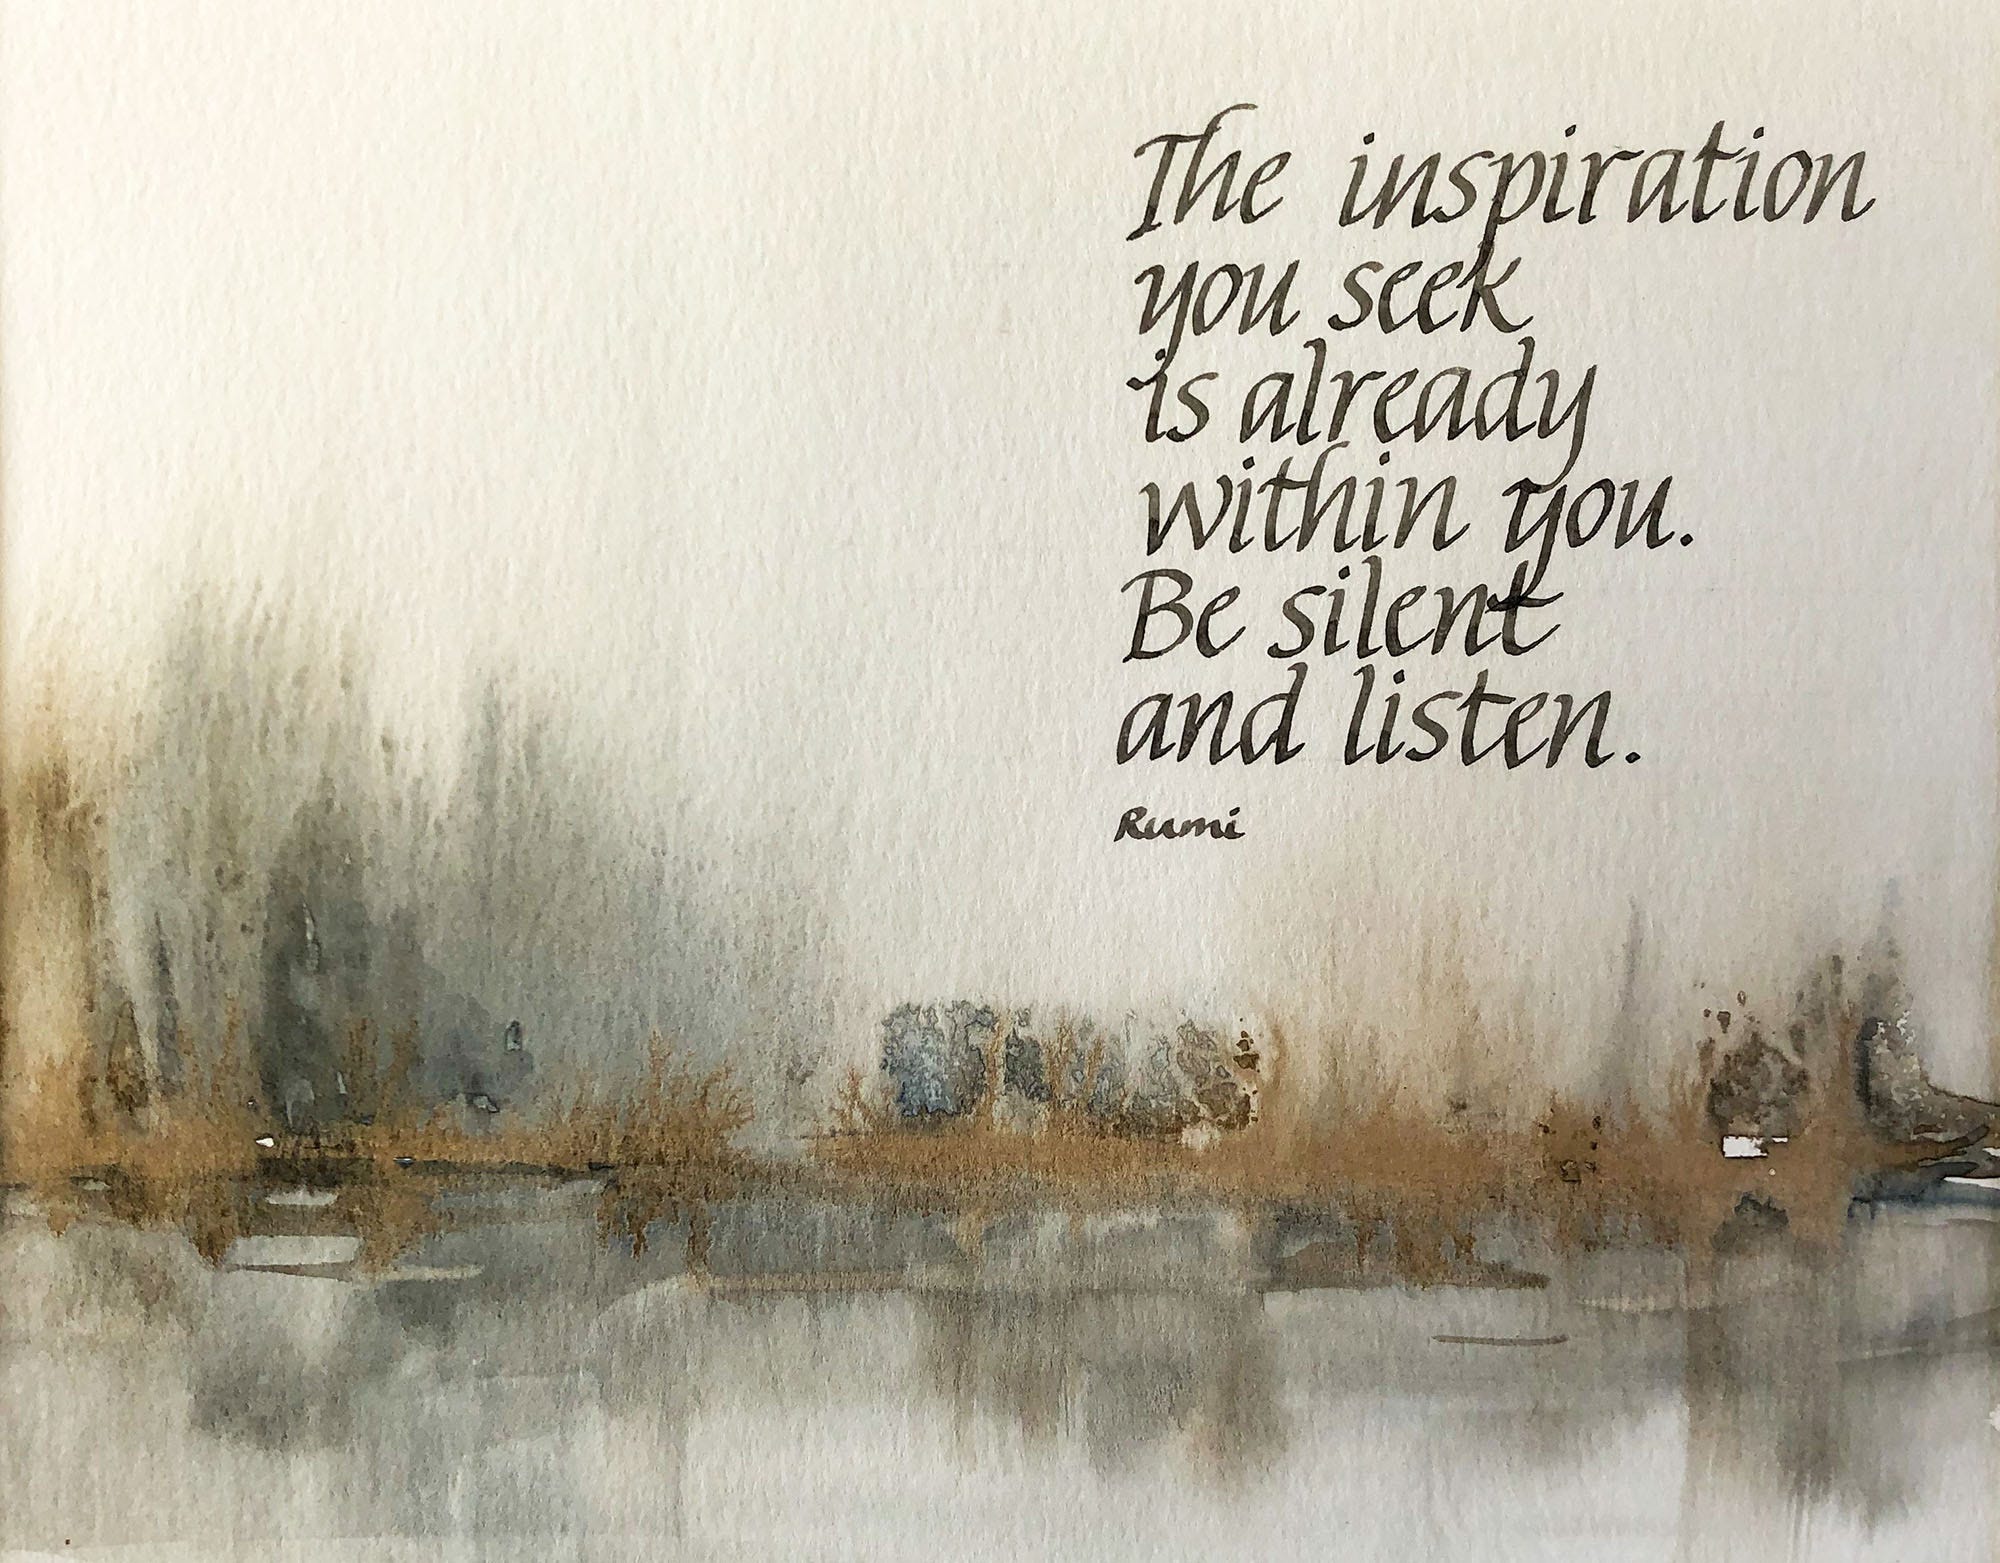 The inspiration
you seek
is already
within you.
Be silent
and listen.
Rumi